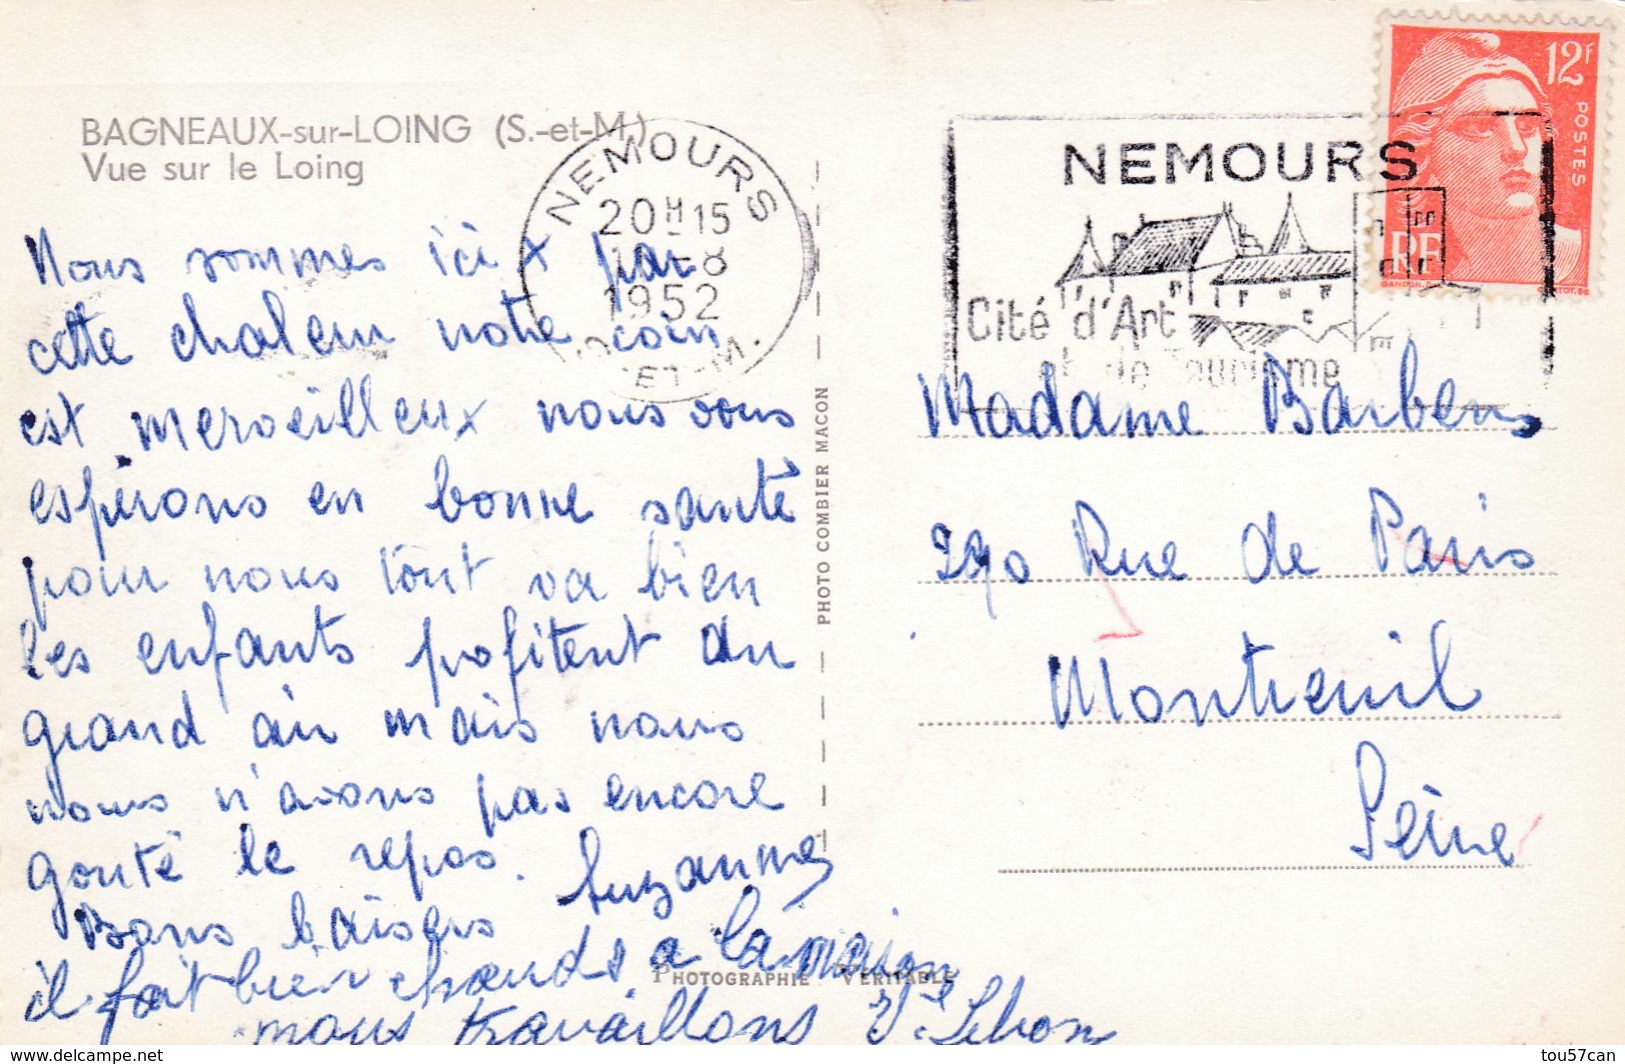 BAGNEAUX-sur-LOING (S.-et-M.)
Vue sur le Loing
NEMOURS
20H15
-8
1952
ET-M.
NEMOURS
Cité d'Art
et de Tourisme
12F
POSTES
RF
Nous sommes ici x par
cette chaleur notre coin
est merveilleux nous vous
espérons en bonne santé
pour nous tout va bien
les enfants pofitent du
grand air mais nous
nous n'avons pas encore
gouté le repos.
Bons baisers Suzanne
il fait bien chaud a la maison
nous travaillons
PHOTO COMBIER MACON
PHOTOGRAPHIE VÉRITABLE
Madame Barbens
290 Rue de Paris
Montreuil
Seine
tou57can
delcampe.net